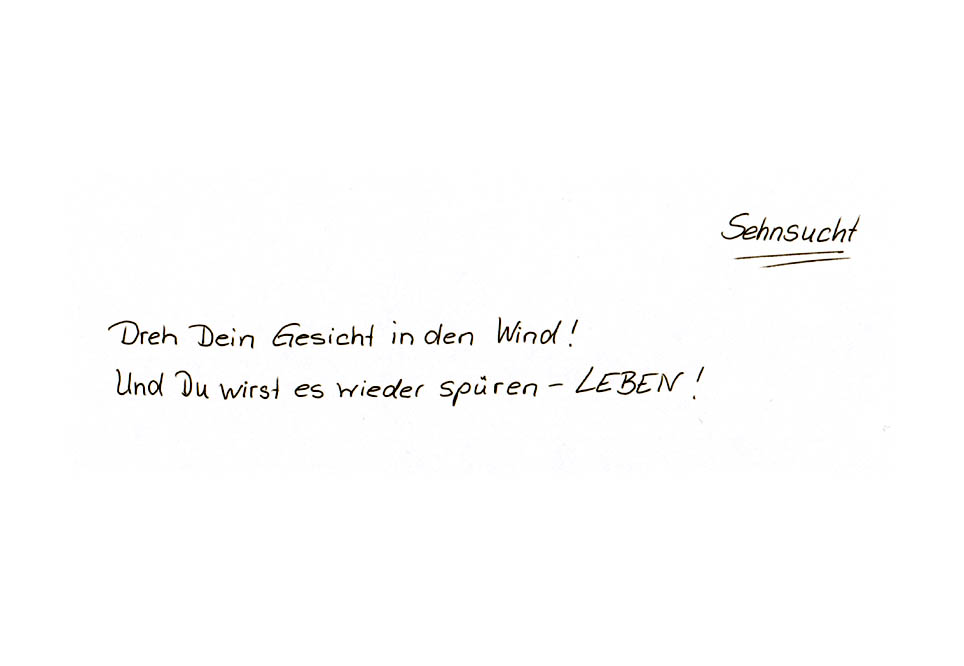 Sehnsucht
Dreh Dein Gesicht in den Wind!
Und Du wirst es wieder spüren – LEBEN!